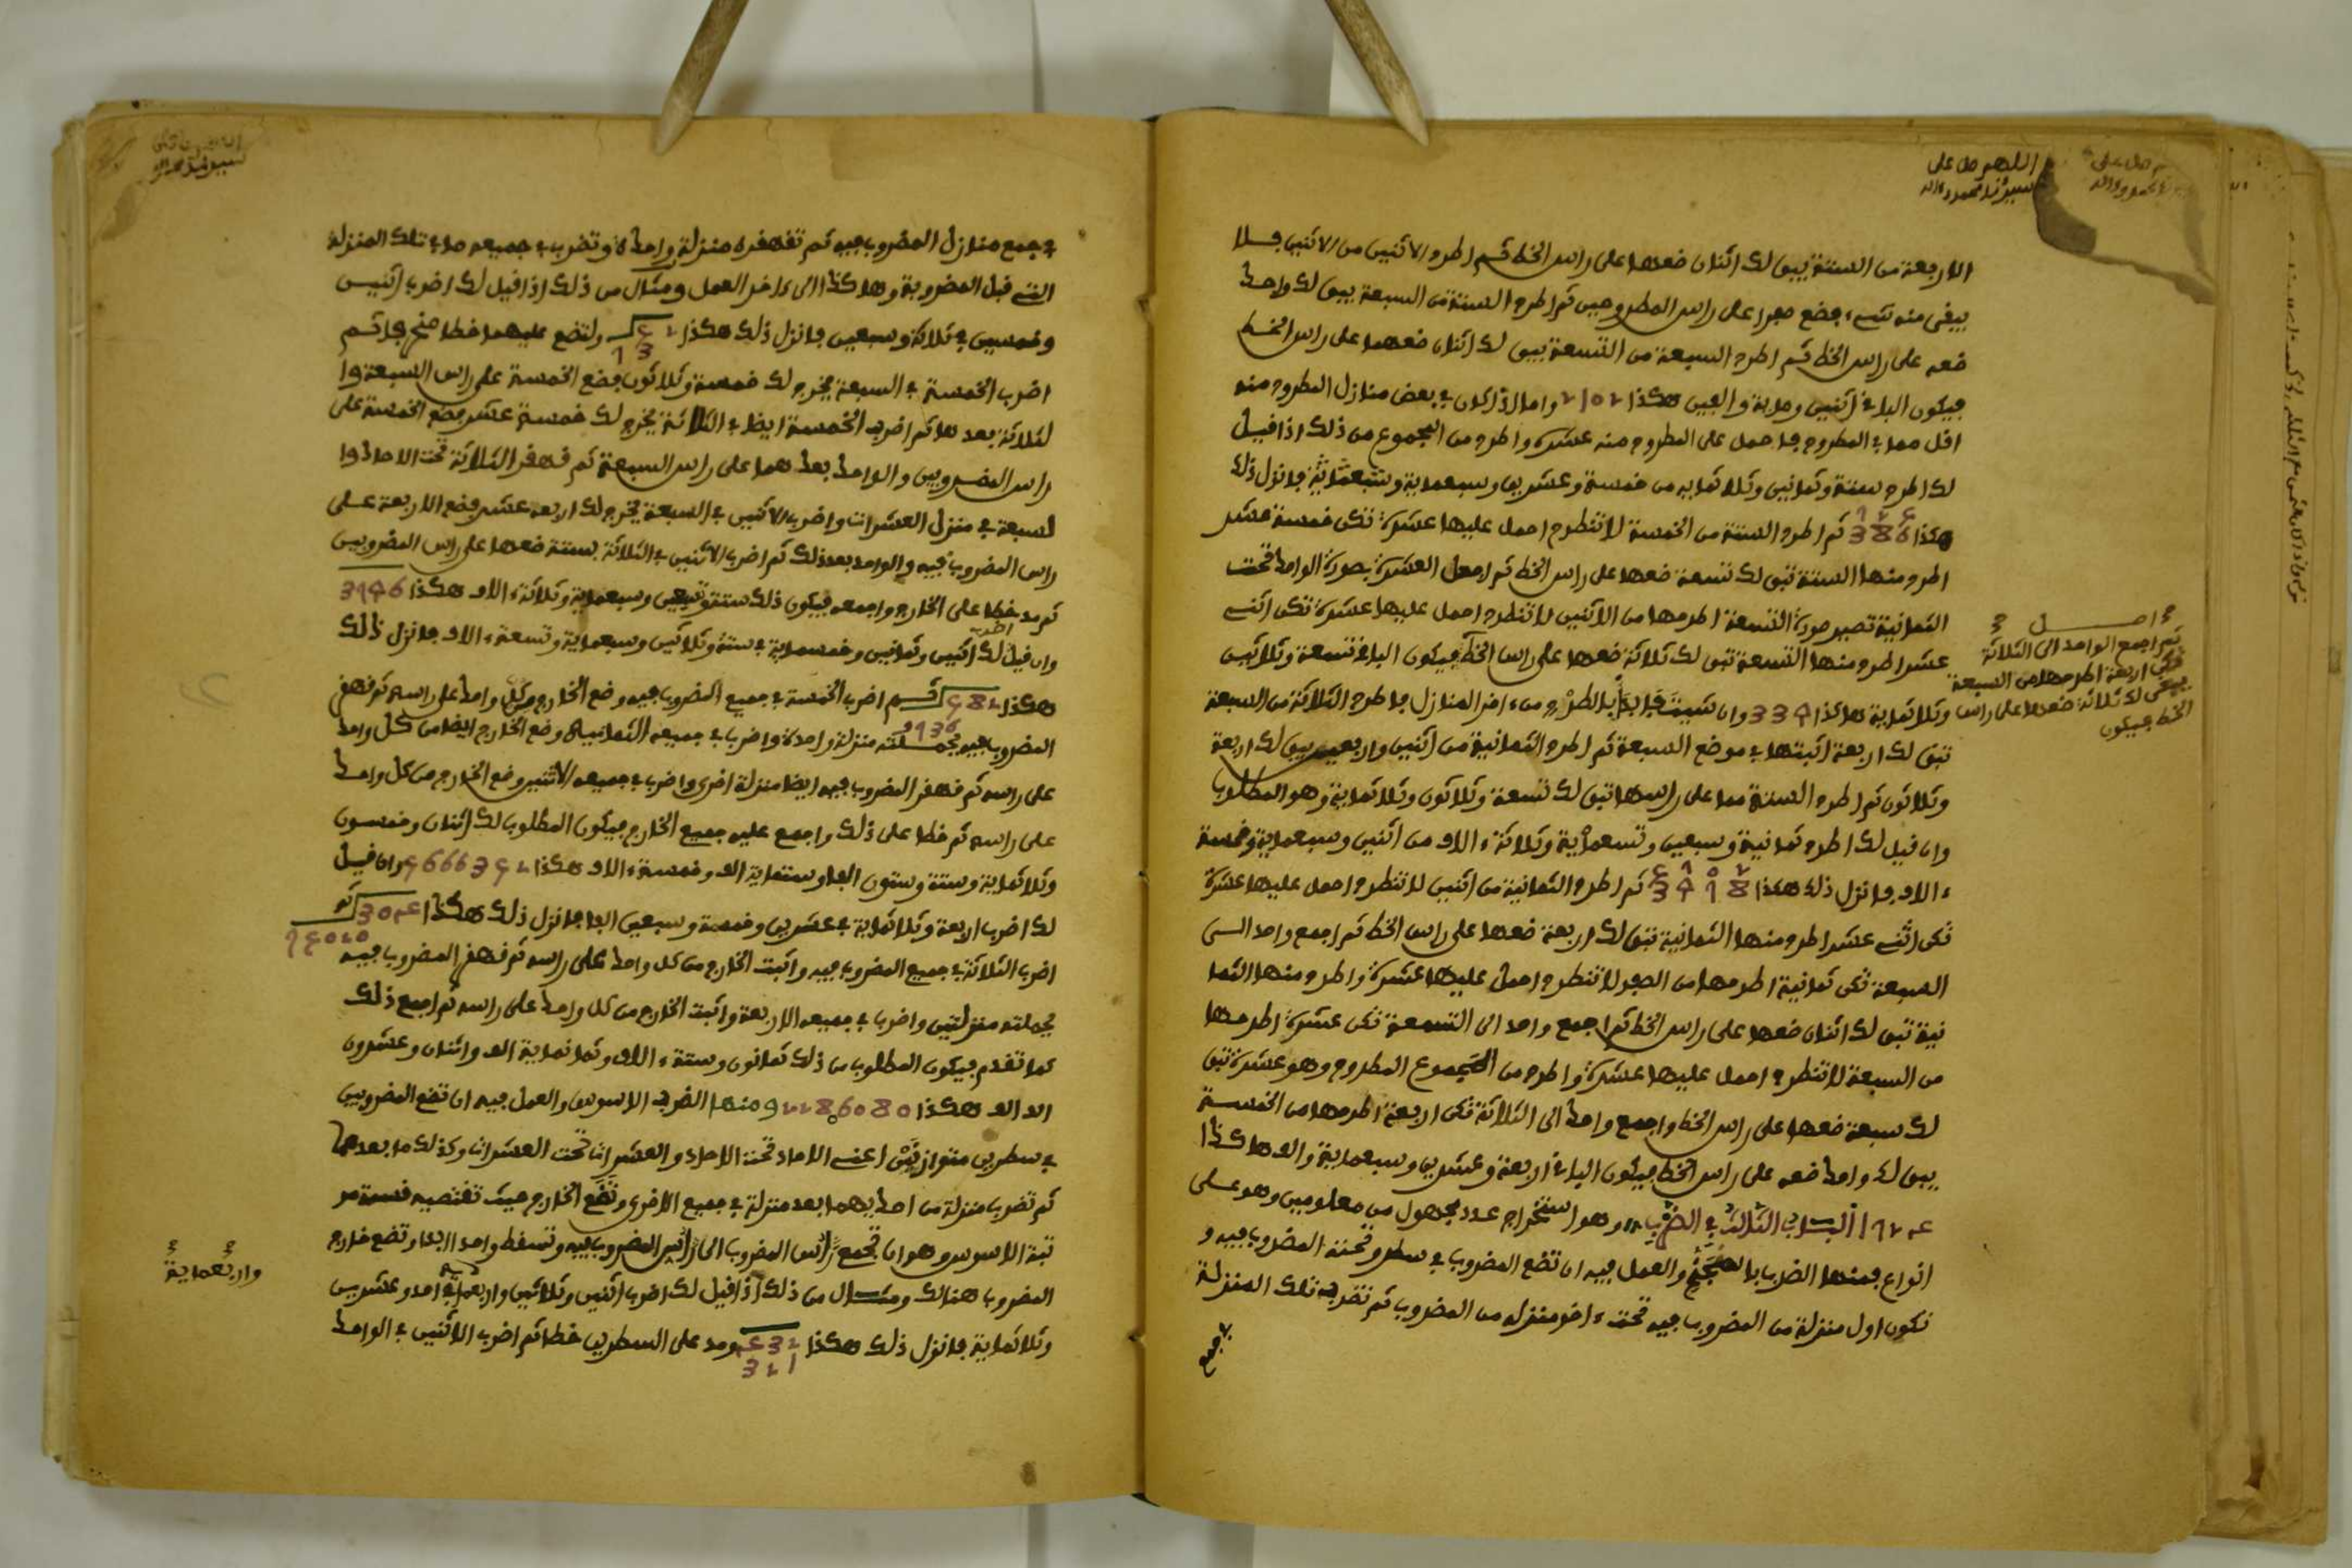 اللهم صل على
سيدنا محمد وءاله
الاربعة من الستة يبق لك اثنان ضعهما على راس الخط ثم اطرح الاثنين من الاثنين فلا
يبقى منه شيء فضع صفرا على راس المطروحين ثم اطرح الستة من السبعة يبق لك واحد
ضعه على راس الخط ثم اطرح السبعة من التسعة يبق لك اثنان ضعهما على راس الخط
فيكون الباقي اثنين ومائة والفين هكذا واما اذا كان في بعض منازل المطروح منه
اقل مما في المطروح فاحمل على المطروح منه عشرة واطرح من المجموع من ذلك اذا قيل
لك اطرح ستة وثمانين وثلاثماية من خمسة وعشرين وسبعماية فانزل ذلك
هكذا 386 ثم اطرح الستة من الخمسة لا تنطرح احمل عليها عشرة تكن خمسة عشر
اطرح منها الستة تبق لك تسعة ضعها على راس الخط ثم اجعل العشرة بصورة الواحد تحت
الثمانية تصير صورة التسعة اطرحها من الاثنين لا تنطرح احمل عليها عشرة تكن اثني
عشر اطرح منها التسعة تبق لك ثلاثة ضعها على راس الخط فيكون الباقي تسعة وثلاثين
وثلاثماية هاكذا 339 وان شيت فابدأ بالطرح من ءاخر المنازل فاطرح الثلاثة من السبعة
تبق لك اربعة اثبتها في موضع السبعة ثم اطرح الثمانية من اثنين واربعين يبق لك اربعة
وثلاثون ثم اطرح الستة مما على راسها تبق لك تسعة وثلاثون وثلاثماية وهو المطلوب
وان قيل لك اطرح ثمانية وسبعين وتسعماية وثلاثة ءالاف من اثنين وسبعماية وخمسة
ءالاف فانزل ذلك هكذا ثم اطرح الثمانية من اثنين لا تنطرح احمل عليها عشرة
تكن اثني عشر اطرح منها الثمانية تبق لك اربعة ضعها على راس الخط ثم اجمع واحد الى
السبعة تكن ثمانية اطرحها من الصفر لا تنطرح احمل عليها عشرة واطرح منها الثما
نية تبق لك اثنان ضعها على راس الخط ثم اجمع واحد الى التسعة تكن عشرة اطرحها
من السبعة لا تنطرح احمل عليها عشرة واطرح من المجموع المطروح وهو عشرة تبق
لك سبعة ضعها على راس الخط واجمع واحدا الى الثلاثة تكن اربعة اطرحها من الخمسة
يبق لك واحد ضعه على راس الخط فيكون الباقي اربعة وعشرين وسبعماية والف هاكذا
الباب الثالث في الضرب وهو استخراج عدد مجهول من معلومين وهو على
انواع فمنها الضرب بالمجنح والعمل فيه ان تضع المضروب في سطر وتحته المضروب فيه و
تكون اول منزلة من المضروب فيه تحت ءاخر منزلة من المضروب ثم تضرب تلك المنزلة
في جمع
اصل
ثم اجمع الواحد الى الثلاثة
تكن اربعة اطرحها من السبعة
يبقى لك ثلاثة ضعها على راس
الخط فيكون
في جمع منازل المضروب فيه ثم تقهقره منزلة واحدة وتضرب في جميعه ما في تلك المنزلة
التي قبل المضروبة وهاكذا الى ءاخر العمل ومثال من ذلك اذا قيل لك اضرب اثنين
وخمسين في ثلاثة وسبعين فانزل ذلك هكذا ولتضع عليهما خطا
اضرب الخمسة في السبعة يخرج لك خمسة وثلاثون فضع الخمسة على راس السبعة وا
لثلاثة بعدها ثم اضرب الخمسة ايضا في الثلاثة يخرج لك خمسة عشر فضع الخمسة على
راس المضروبين والواحد بعدهما على راس السبعة ثم قهقر الثلاثة تحت الاحاد وا
لسبعة في منزل العشرات واضرب الاثنين في السبعة يخرج لك اربعة عشر فضع الاربعة على
راس المضروب فيه والواحد بعد ذلك ثم اضرب الاثنين في الثلاثة بستة ضعها على راس المضروبين
ثم مد خطا على الخارج واجمعه فيكون ذلك ستة وتسعين وسبعماية وثلاثة ءالاف هكذا
وان قيل لك اضرب اثنين وثمانين وخمسماية في ستة وثلاثين وسبعماية وتسعة ءالاف فانزل ذلك
هكذا ثم اضرب الخمسة في جميع المضروب فيه وضع الخارج من كل واحد على راسه ثم قهقر
المضروب فيه بجملته منزلة واحدة واضرب في جميعه الثمانية وضع الخارج ايضا من كل واحد
على راسه ثم قهقر المضروب فيه ايضا منزلة اخرى واضرب في جميعه الاثنين وضع الخارج من كل واحد
على راسه ثم خطا على ذلك واجمع عليه جميع الخارج فيكون المطلوب لك اثنان وخمسون
وثلاثماية وستة وستون الفا وستماية الف وخمسة ءالاف هكذا وان قيل
لك اضرب اربعة وثلاثماية في عشرين وخمسة وسبعين الفا فانزل ذلك هكذا ثم
اضرب الثلاثة في جميع المضروب فيه واثبت الخارج من كل واحد على راسه ثم قهقر المضروب فيه
بجملته منزلتين واضرب في جميعه الاربعة واثبت الخارج من كل واحد على راسه ثم اجمع ذلك
كما تقدم فيكون المطلوب من ذلك ثمانون وستة ءالاف وثمانماية الف واثنان وعشرون
الف الف هكذا ومنها الضرب الاسوس والعمل فيه ان تضع المضروبين
في سطرين متوازيين اعني الاحاد تحت الاحاد والعشرات تحت العشرات وكذلك ما بعدهما
ثم تضرب منزلة من احديهما بعد منزلة في جميع الاخرى وتضع الخارج حيث تقتضيه قسمة مر
تبة الاسوس وهو ان تجمع راس المضروب الى راس المضروب فيه وتسقط واحد ابدا وتضع خارج
المضروب هنالك ومثال من ذلك اذا قيل لك اضرب اثنين وثلاثين واربعماية في احد وعشرين
وثلاثماية فانزل ذلك هكذا ومد على السطرين خطا ثم اضرب الاثنين في الواحد
واربعماية